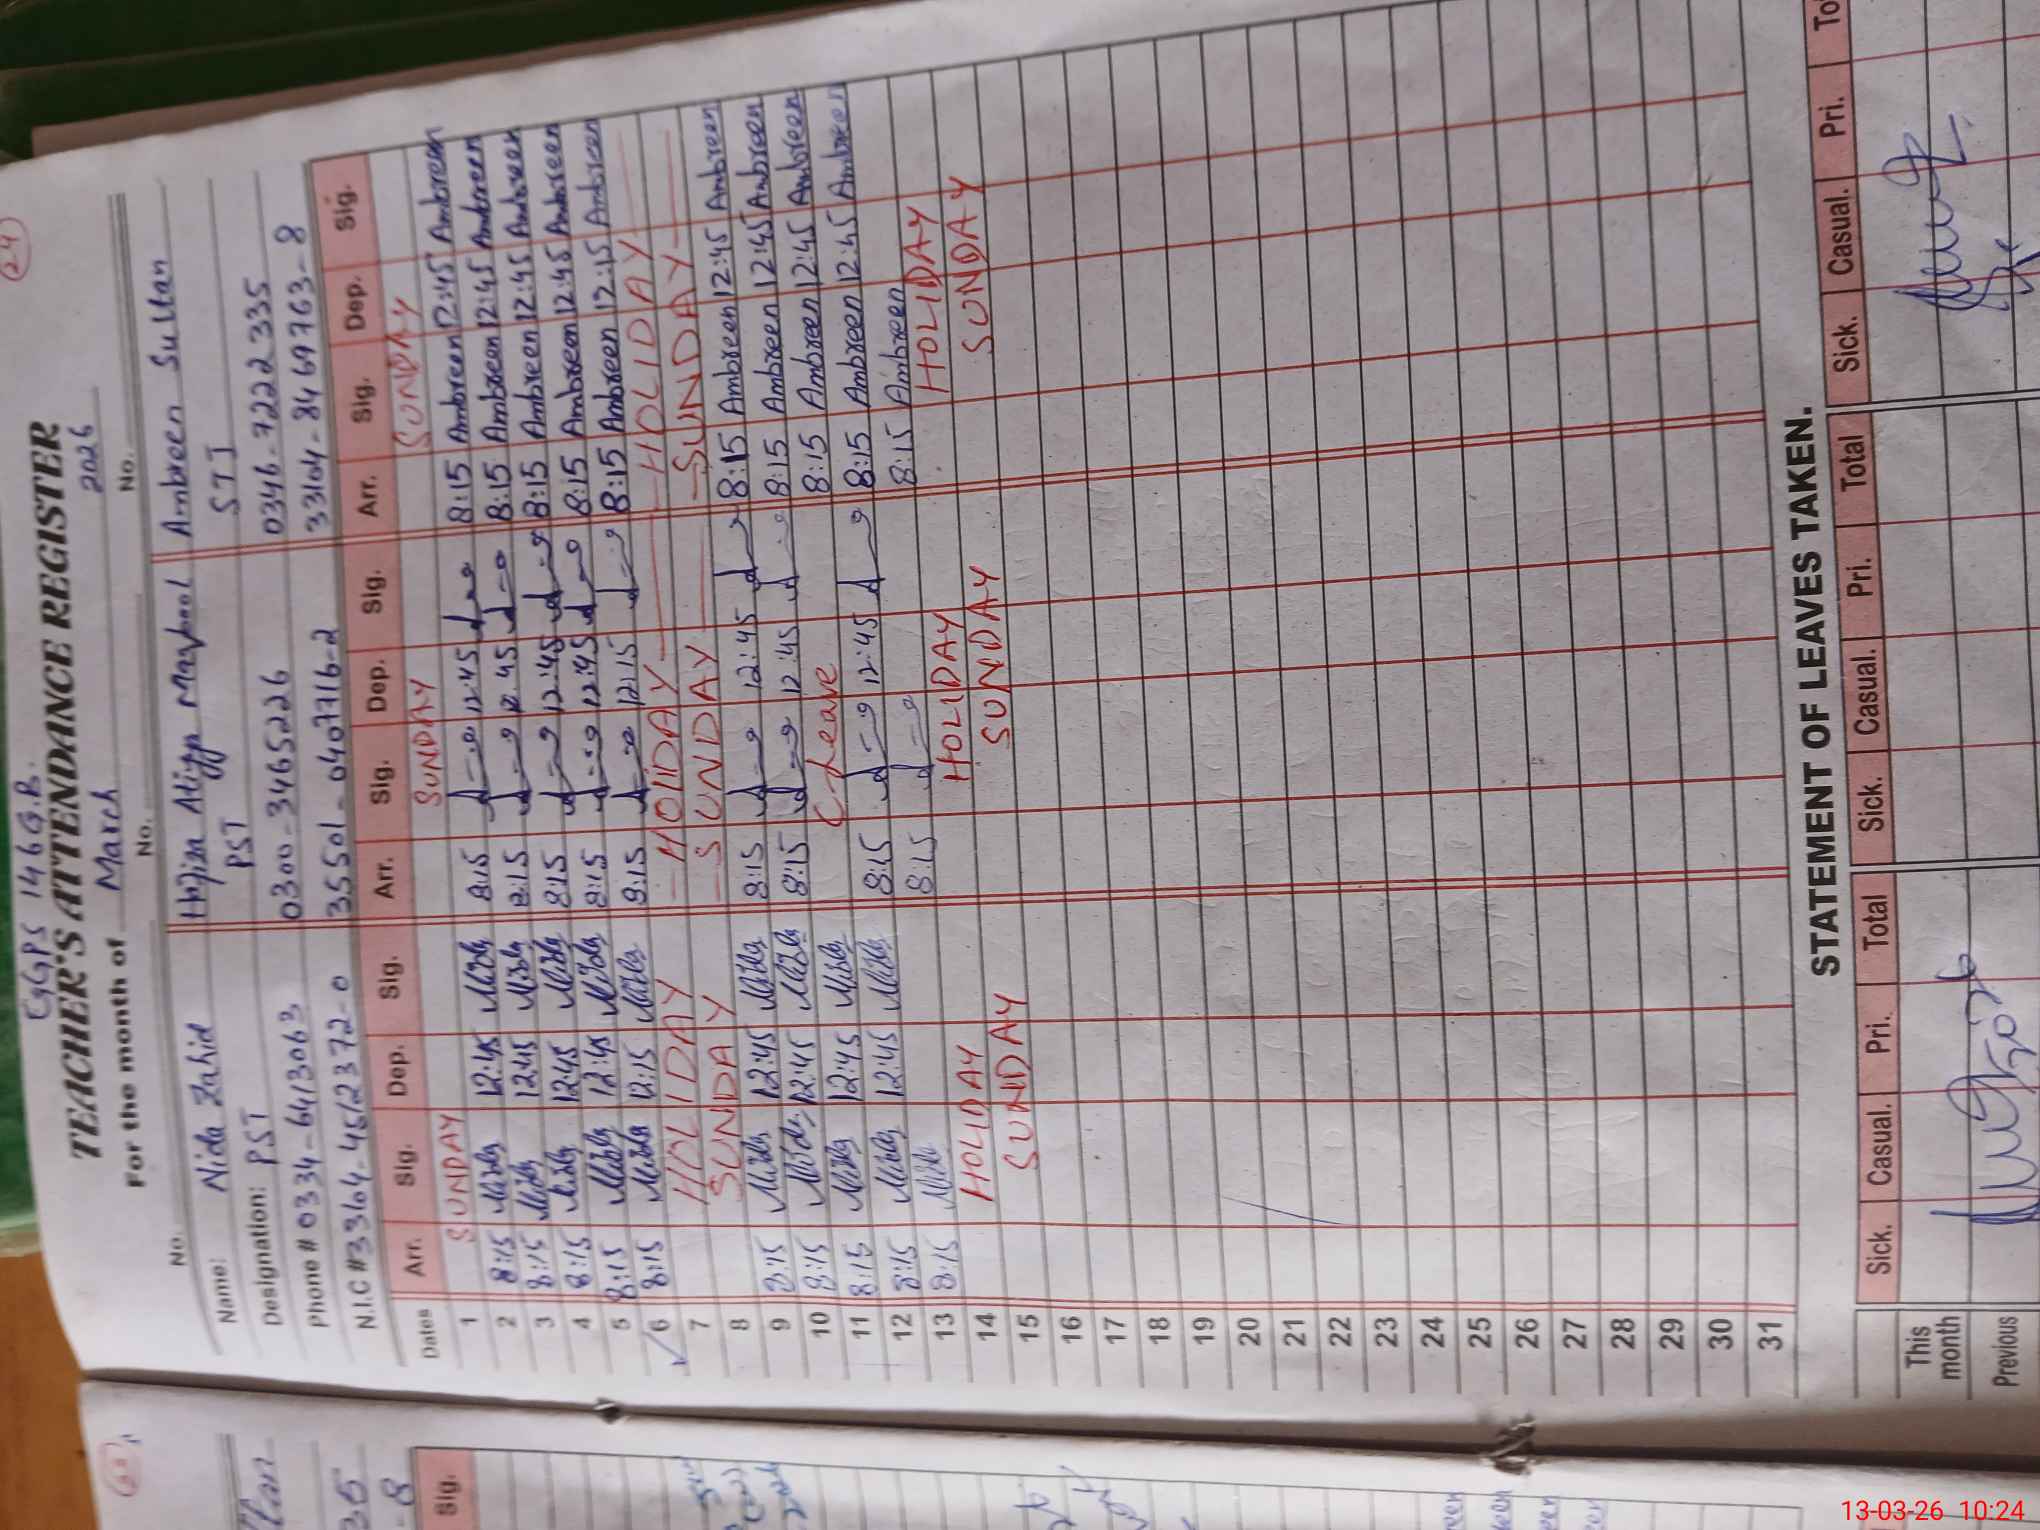 24
GGPS 146 G.B.
TEACHER'S ATTENDANCE REGISTER
For the month of March 2026
No. No. No.
Name: Nida Zahid Hafiza Atiqa Maqbool Ambreen Sultan
Designation: PST PST STI
Phone # 0334-6413063 0300-3465226 0346-7222335
N.I.C # 33104-4512372-0 35501-0407716-2 33104-8469763-8
Dates Arr. Sig. Dep. Sig. Arr. Sig. Dep. Sig. Arr. Sig. Dep. Sig.
1 SUNDAY SUNDAY SUNDAY
2 8:15 Nida 12:45 Nida 8:15 12:45 8:15 Ambreen 12:45 Ambreen
3 8:15 Nida 12:45 Nida 8:15 12:45 8:15 Ambreen 12:45 Ambreen
4 8:15 Nida 12:45 Nida 8:15 12:45 8:15 Ambreen 12:45 Ambreen
5 8:15 Nida 12:45 Nida 8:15 12:45 8:15 Ambreen 12:45 Ambreen
6 8:15 Nida 12:15 Nida 8:15 12:15 8:15 Ambreen 12:15 Ambreen
7 HOLIDAY HOLIDAY HOLIDAY
8 SUNDAY SUNDAY SUNDAY
9 8:15 Nida 12:45 Nida 8:15 12:45 8:15 Ambreen 12:45 Ambreen
10 8:15 Nida 12:45 Nida 8:15 12:45 8:15 Ambreen 12:45 Ambreen
11 8:15 Nida 12:45 Nida C-Leave 8:15 Ambreen 12:45 Ambreen
12 8:15 Nida 12:45 Nida 8:15 12:45 8:15 Ambreen 12:45 Ambreen
13 8:15 Nida 8:15 8:15 Ambreen
14 HOLIDAY HOLIDAY HOLIDAY
15 SUNDAY SUNDAY SUNDAY
16
17
18
19
20
21
22
23
24
25
26
27
28
29
30
31
STATEMENT OF LEAVES TAKEN.
Sick. Casual. Pri. Total Sick. Casual. Pri. Total Sick. Casual. Pri. To
This month
Previous
Sig.
13-03-26 10:24